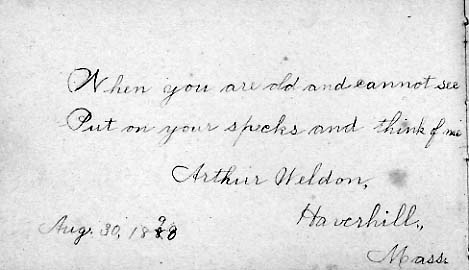 When you are old and cannot see
Put on your specks and think of me
Arthur Weldon,
Haverhill,
Mass.
Aug. 30, 18